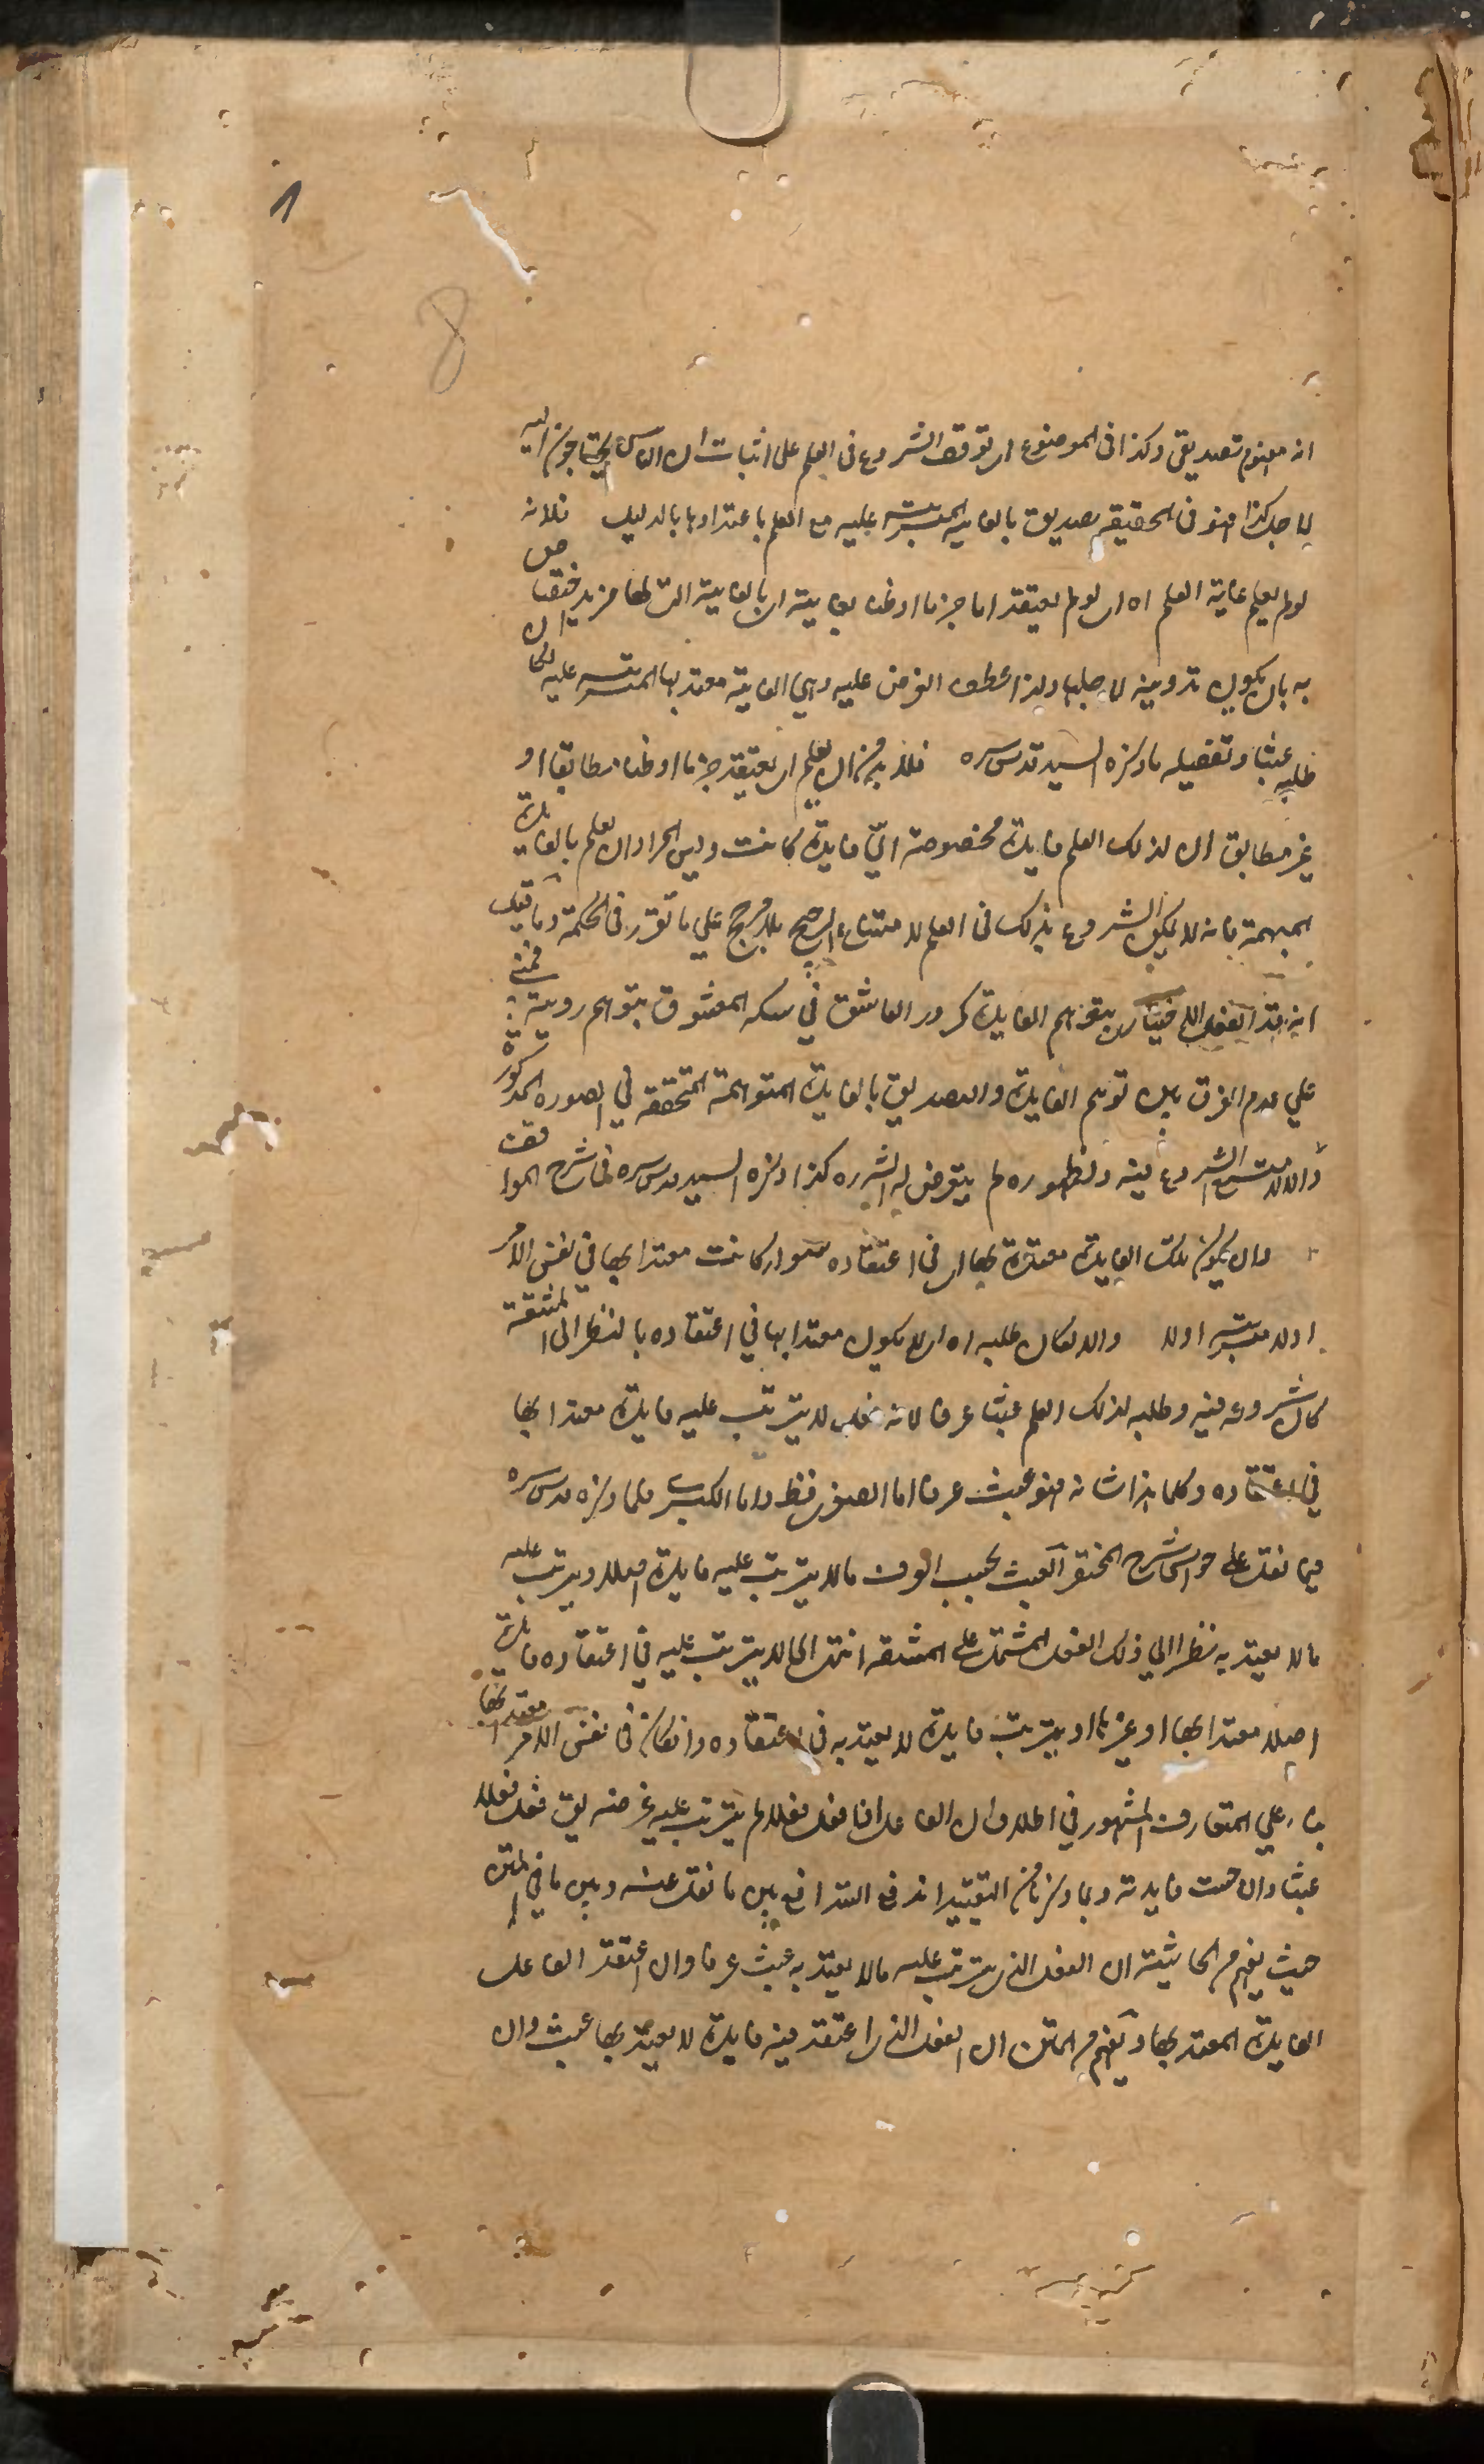 انه مفهوم تصديقي وكذا في الموضوع اى توقف الشروع في العلم على اثبات ان الناس يحتاجون اليه
لاجل كذا فهو في الحقيقة تصديق بالغاية المترتبة عليه مع العلم باعتدادها بالدليل فلانه
لو لم يعلم غاية العلم اه اى لو لم يعتقد اما جزما او ظنا بغاية اى بالغاية التى لها مزيد اختصاص
به بان يكون تدوينه لاجلها ولذا عطف الغرض عليه وهي الغاية معتد بها المترتبة عليه لكان
طلبه عبثا وتفصيله ما ذكره السيد قدس سره فلا بد من ان يعلم اى يعتقد جزما او ظنا مطابقا او
غير مطابق ان لذلك العلم فايدة مخصوصة اىّ فايدة كانت وليس المراد ان يعلم بالفايدة
المبهمة فانه لا يمكن الشروع بذلك في العلم لامتناع الترجيح بلا مرجح علي ما تقرر في الحكمة وما قيل
انه قد الفعل الاختيارى بتوهم الفايدة كمرور العاشق في سكة المعشوق بتوهم رويته فمبني
علي عدم الفرق بين توهم الفايدة والتصديق بالفايدة المتوهمة المتحققة في الصورة المذكورة
والا لامتنع الشروع فيه ولظهوره لم يتعرض له الش ره كذا ذكره السيد قدس سره في شرح المواقف
وان يكون تلك الفايدة معتدة بها اى في اعتقاده سواء كانت معتدا بها في نفس الامر
اولا مترتبه اولا والا لكان طلبه اه اى لم يكون معتدا بها في اعتقاده بالنظر الى المشقة
كان شروعه فيه وطلبه لذلك العلم عبثا عرفا لانه فعل لا يترتب عليه فايدة معتدا بها
في اعتقاده وكلما هذا شانه فهو عبث عرفا اما الصغرى فظ واما الكبرى فلما ذكره قدس سره
فيما نقل على حواشى شرح المختصر العبث بحسب العرف ما لا يترتب عليه فايدة اصلا او يترتب عليه
ما لا يعتد به نظرا الي ذلك الفعل المشتمل على المشقة انتهى اى ما لا يترتب عليه في اعتقاده فايدة
اصلا معتدا بها او غيرها او يترتب فايدة لا يعتد به في اعتقاده وان كان في نفس الامر معتدا بها
بناء علي المتعارف المشهور في اطلاق ان الفاعل اذا فعل فعلا لم يترتب عليه غرضه يقال فعل فعلا
عبثا وان حصلت فايدته وبما ذكرنا من التقييد اندفع التدافع بين ما نقل عنه وبين ما في المتن
حيث يفهم من الحاشية ان الفعل الذى يترتب عليه ما لا يعتد به عبث عرفا وان اعتقد الفاعل
الفايدة المعتد بها ويفهم من المتن ان الفعل الذى اعتقد فيه فايدة لا يعتد بها عبث وان